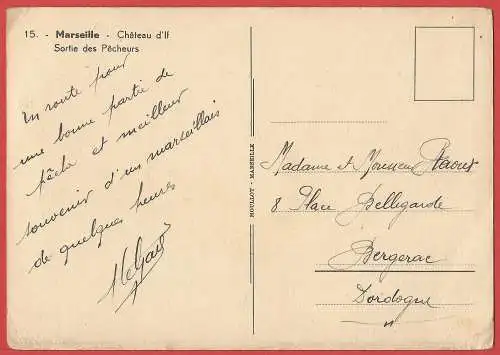 15. - Marseille - Château d'If
Sortie des Pêcheurs
En route pour
une bonne partie de
pêche et meilleur
souvenir d'un marseillais
de quelques heures
MOULLOT - MARSEILLE
Madame et Monsieur
8 Place Bellegarde
Bergerac
Dordogne